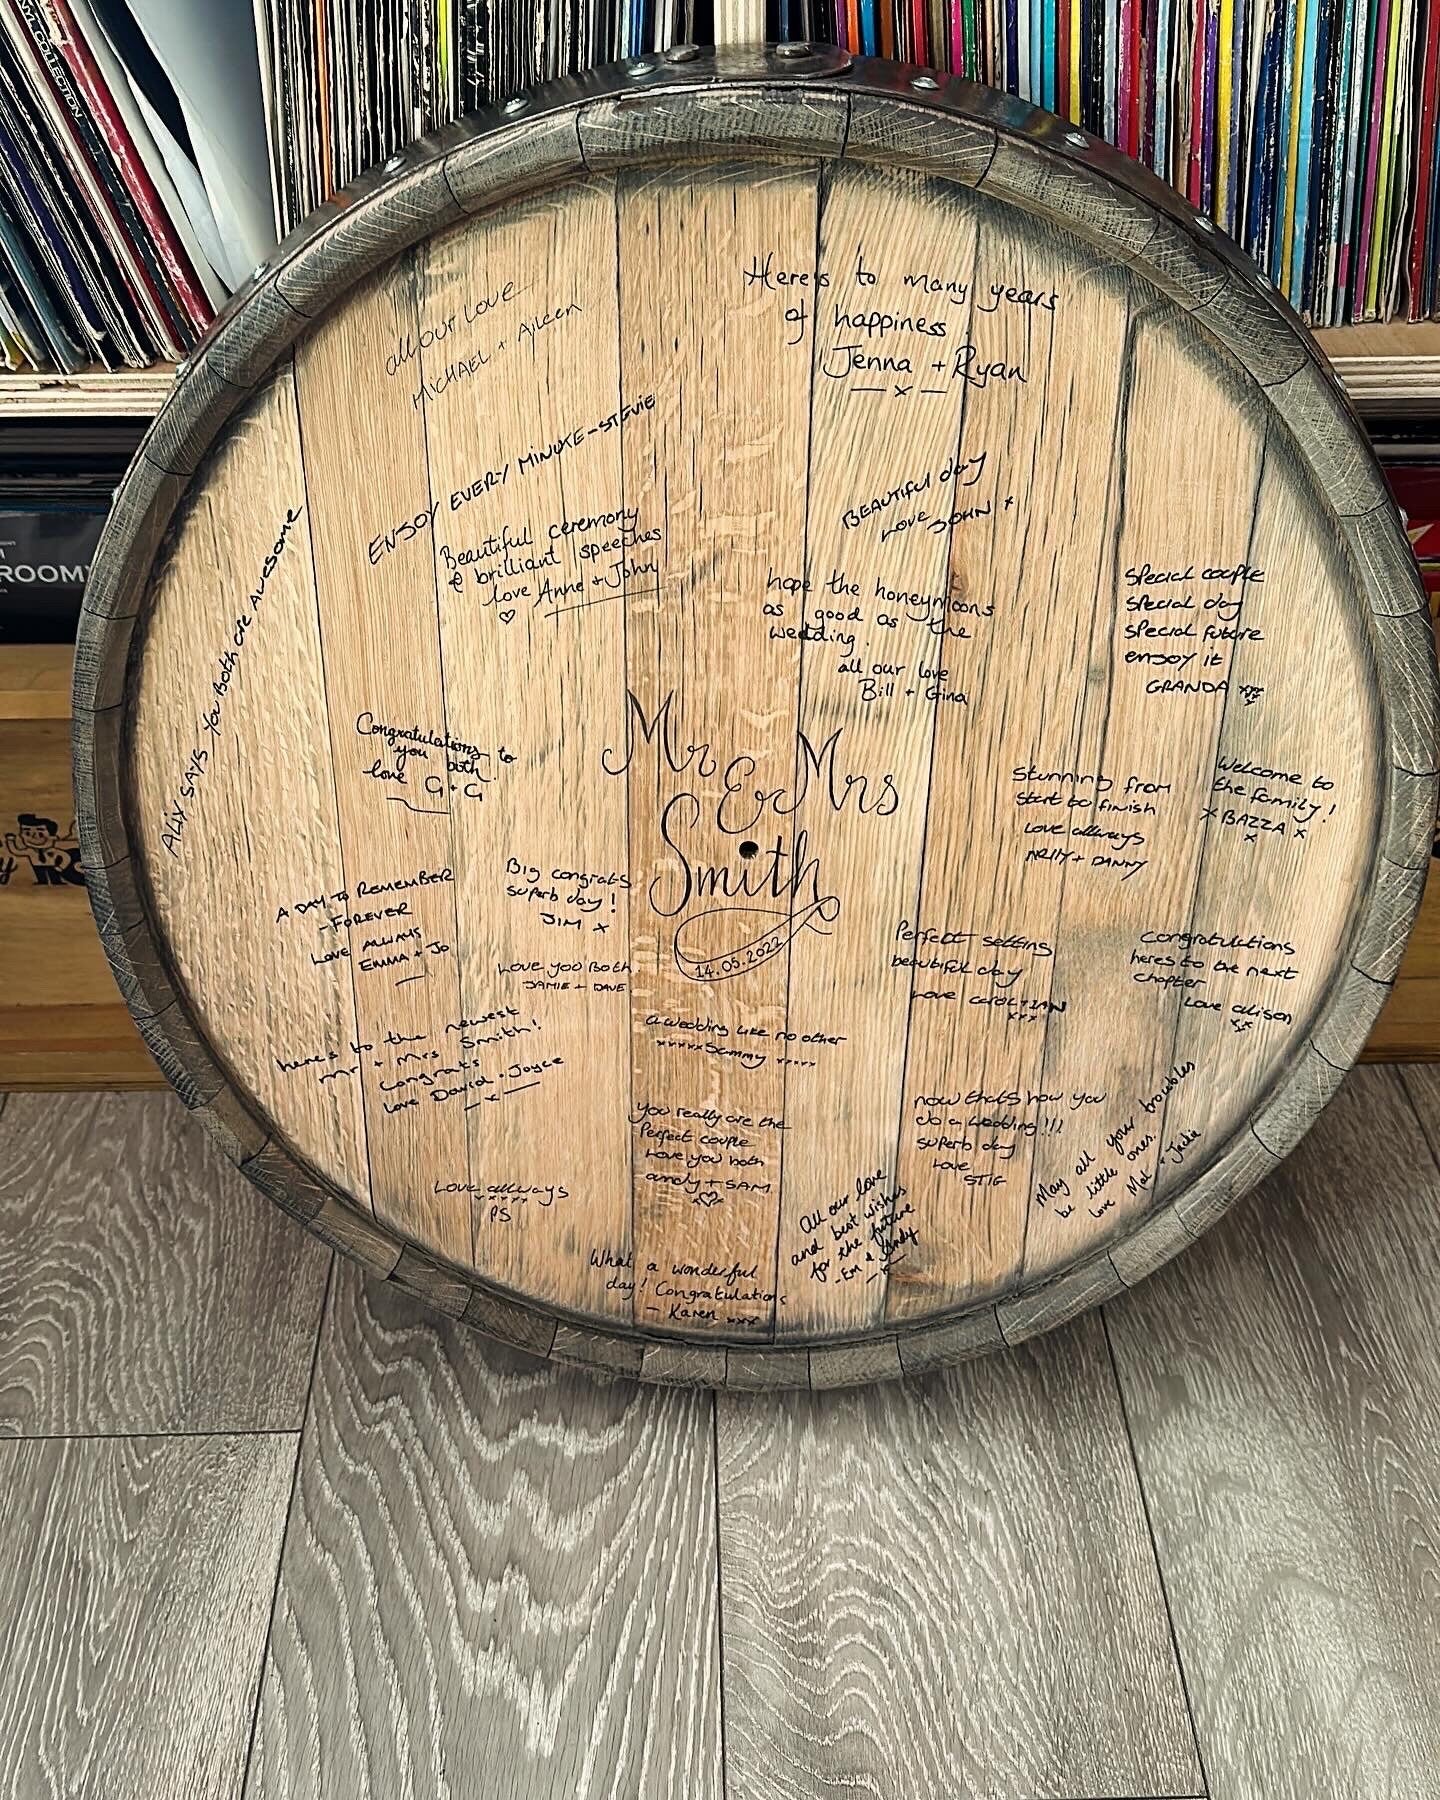 COLLECTION
all our love
MICHAEL + Aileen
Here's to many years
of happiness.
Jenna + Ryan
— x —
ENJOY EVERY MINUTE - STEVIE
Beautiful ceremony
& brilliant speeches
love Anne + John
♡
BEAUTIFUL day
LOVE JOHN x
hope the honeymoons
as good as the
wedding.
all our love
Bill + Gina
special couple
special day
special future
enjoy it
GRANDA xxx
ROOM
Alix SAYS You Both are Awesome
Congratulations to
you both.
love G + G
Mr & Mrs
Smith
14.05.2022
stunning from
start to finish
love allways
NELLY + DANNY
Welcome to
the family!
x BAZZA x
x
A DAY TO REMEMBER
- FOREVER
LOVE ALWAYS
EMMA + JO
Big congrats
superb day!
JIM x
LOVE YOU BOTH
JAMIE + DAVE
Perfect setting
beautiful day
Love CAROL + IAN
xxx
congratulations
heres to the next
chapter
Love alison
xx
heres to the newest
Mr + Mrs Smith!
congrats
love David + Joyce
— x —
a wedding like no other
xxxxx Sammy xxxxx
you really are the
perfect couple
Love you both
andy + SAM
x♡x
now thats how you
do a wedding!!!
superb day
Love
STIG
May all your troubles
be little ones.
love Mal + Jackie
Love allways
xxxxx
PS
All our love
and best wishes
for the future
- Em & Andy
— x —
What a wonderful
day! Congratulations
— Karen xxx